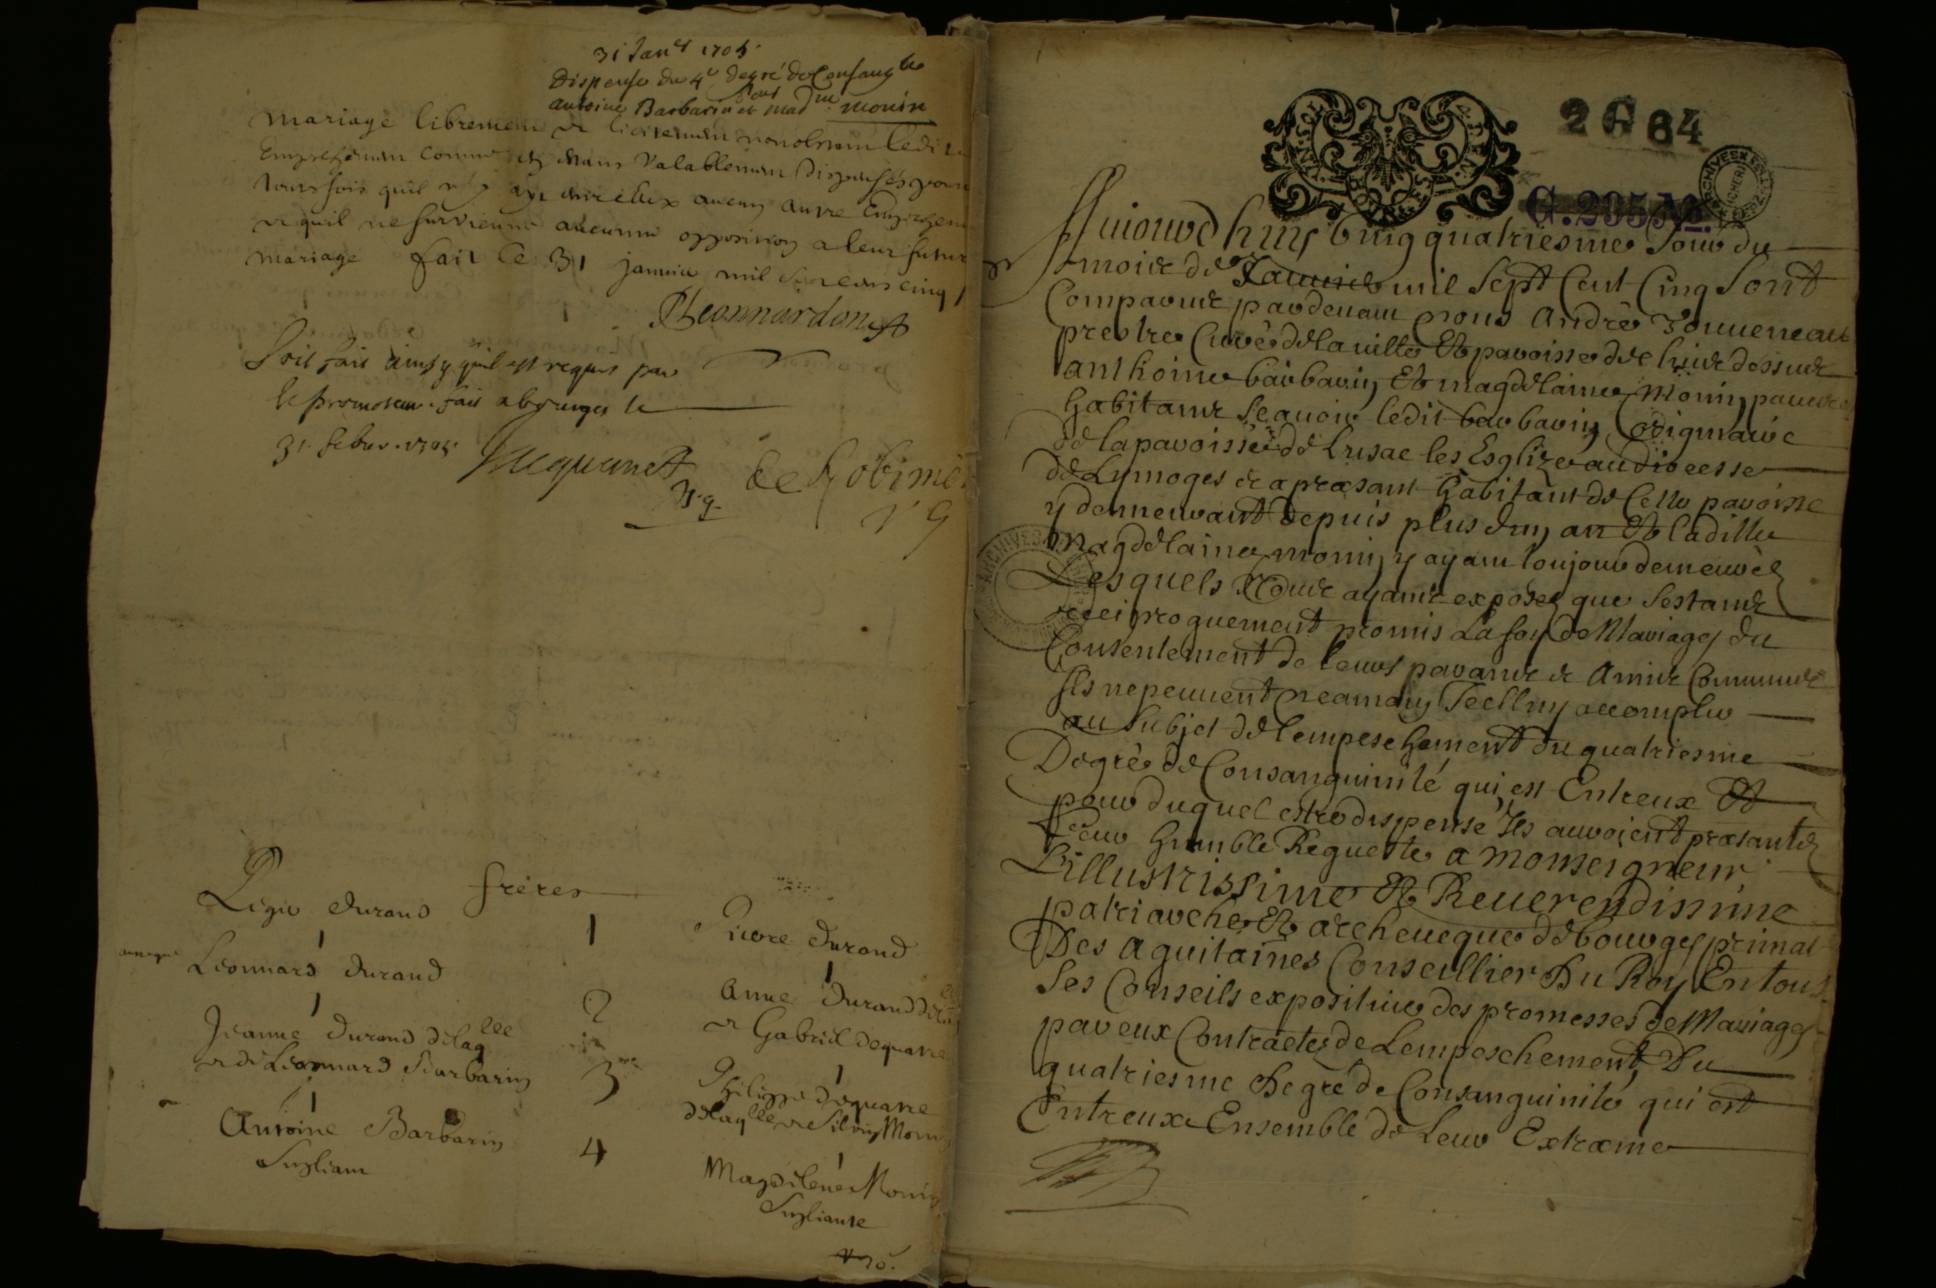 31 Janer 1705.
Dispense du 4e degré de Consangte
pour
Antoine Barbarin et Madne monin
mariage librement et licitement nonobstant ledit
Empeschement comme en etans Valablement Dispensés pour
toutesfois quil ny ayt entre Eux aucun autre Empeschem
et quil ne survienne aucunne opposition a leur futur
mariage fait le 31 janvier mil sept cens cinq
Leonnardon
Soit fait ainsy quil est requis par
le promoteur. fait a bourges le
31. 1705.
de Robime
V G
frères
Legier durand 1 Pierre durand
Leonnard durand 2 Anne durand
et Gabriel dequarre
Jeanne durand delaqlle
et de Leonnard Barbarin 3me Philippe dequarre
delaqlle et Silvin Monin
Antoine Barbarin 4 Magdelene Monin
Supliant Supliante
2 G 64
G. 295
Auiourdhuy Ving quatriesme Jour du
mois de Januier mil Sept Cent Cinq Sont
Comparus pardeuant nous André Touueneau
prestre Curé de la ville Et paroisse de
anthoine barbarin Et magdelaine monin pauures
habitans Scauoir ledit barbarin Originaire
de la paroisse de Lusac les Esglizes au dioecesse
de Lymoges et a præsant habitant de Cette paroisse
y demeurant depuis plus dun an Et ladille
Magdelaine monin y ayant toujour demeurée
Lesquels Nous ayant exposez que Sestans
reciproquement promis La foy de Mariage du
Consentement de leurs parans et Amis Communs
Ils ne peuuent neamoins Icelluy accomplir
au Subjet de lempeschement du quatriesme
Degré de Consanguinité qui est Entreux Et
pour duquel estre dispensé Ils auroient præsanté
Leur humble Requeste a monseigneur
L'illustrissime Et Reuerendissime
patriarche Et archeueque de bourges primat
Des aquitaines Conseillier Du Roy En tous
Ses Conseils expositiue des promesses de Mariage
par eux Contractez de Lempeschement Du
quatriesme Degré de Consanguinité qui est
Entreux Ensemble de Leur Extræme